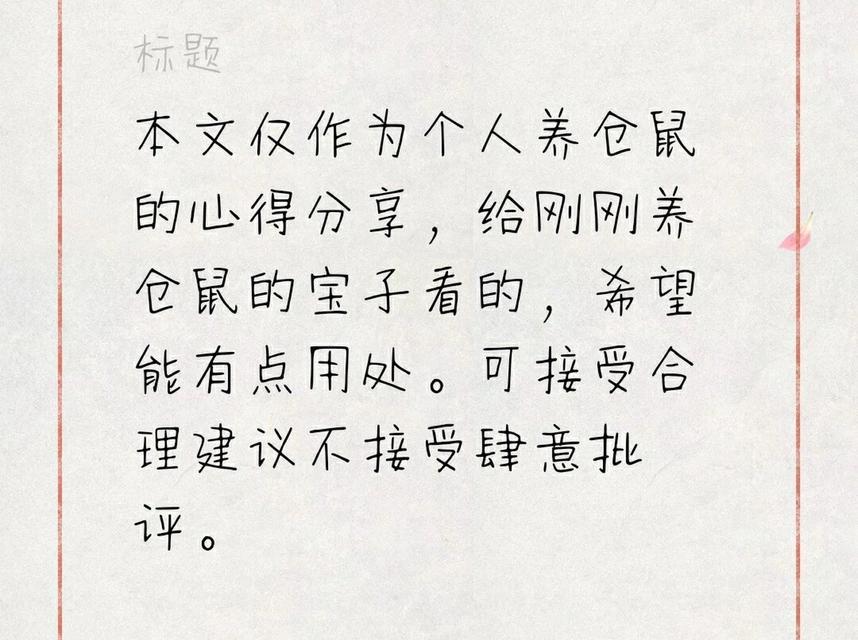 标题
本文仅作为个人养仓鼠
的心得分享，给刚刚养
仓鼠的宝子看的，希望
能有点用处。可接受合
理建议不接受肆意批
评。